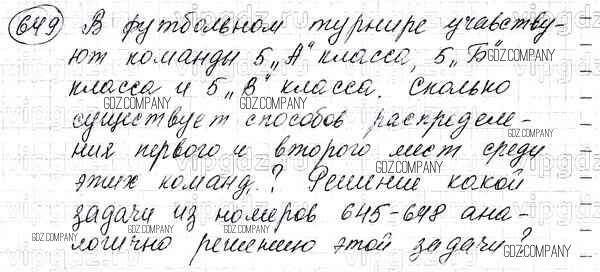 649 В футбольном турнире учавству-
ют команды 5 „А" класса, 5 „Б"
класса и 5 „В" класса. Сколько
существует способов распределе-
ния первого и второго мест среди
этих команд? Решение какой
задачи из номеров 645-648 ана-
логично решению этой задачи?
GDZ.COMPANY
GDZ.COMPANY
GDZ.COMPANY
GDZ.COMPANY
GDZ.COMPANY
GDZ.COMPANY
GDZ.COMPANY
GDZ.COMPANY